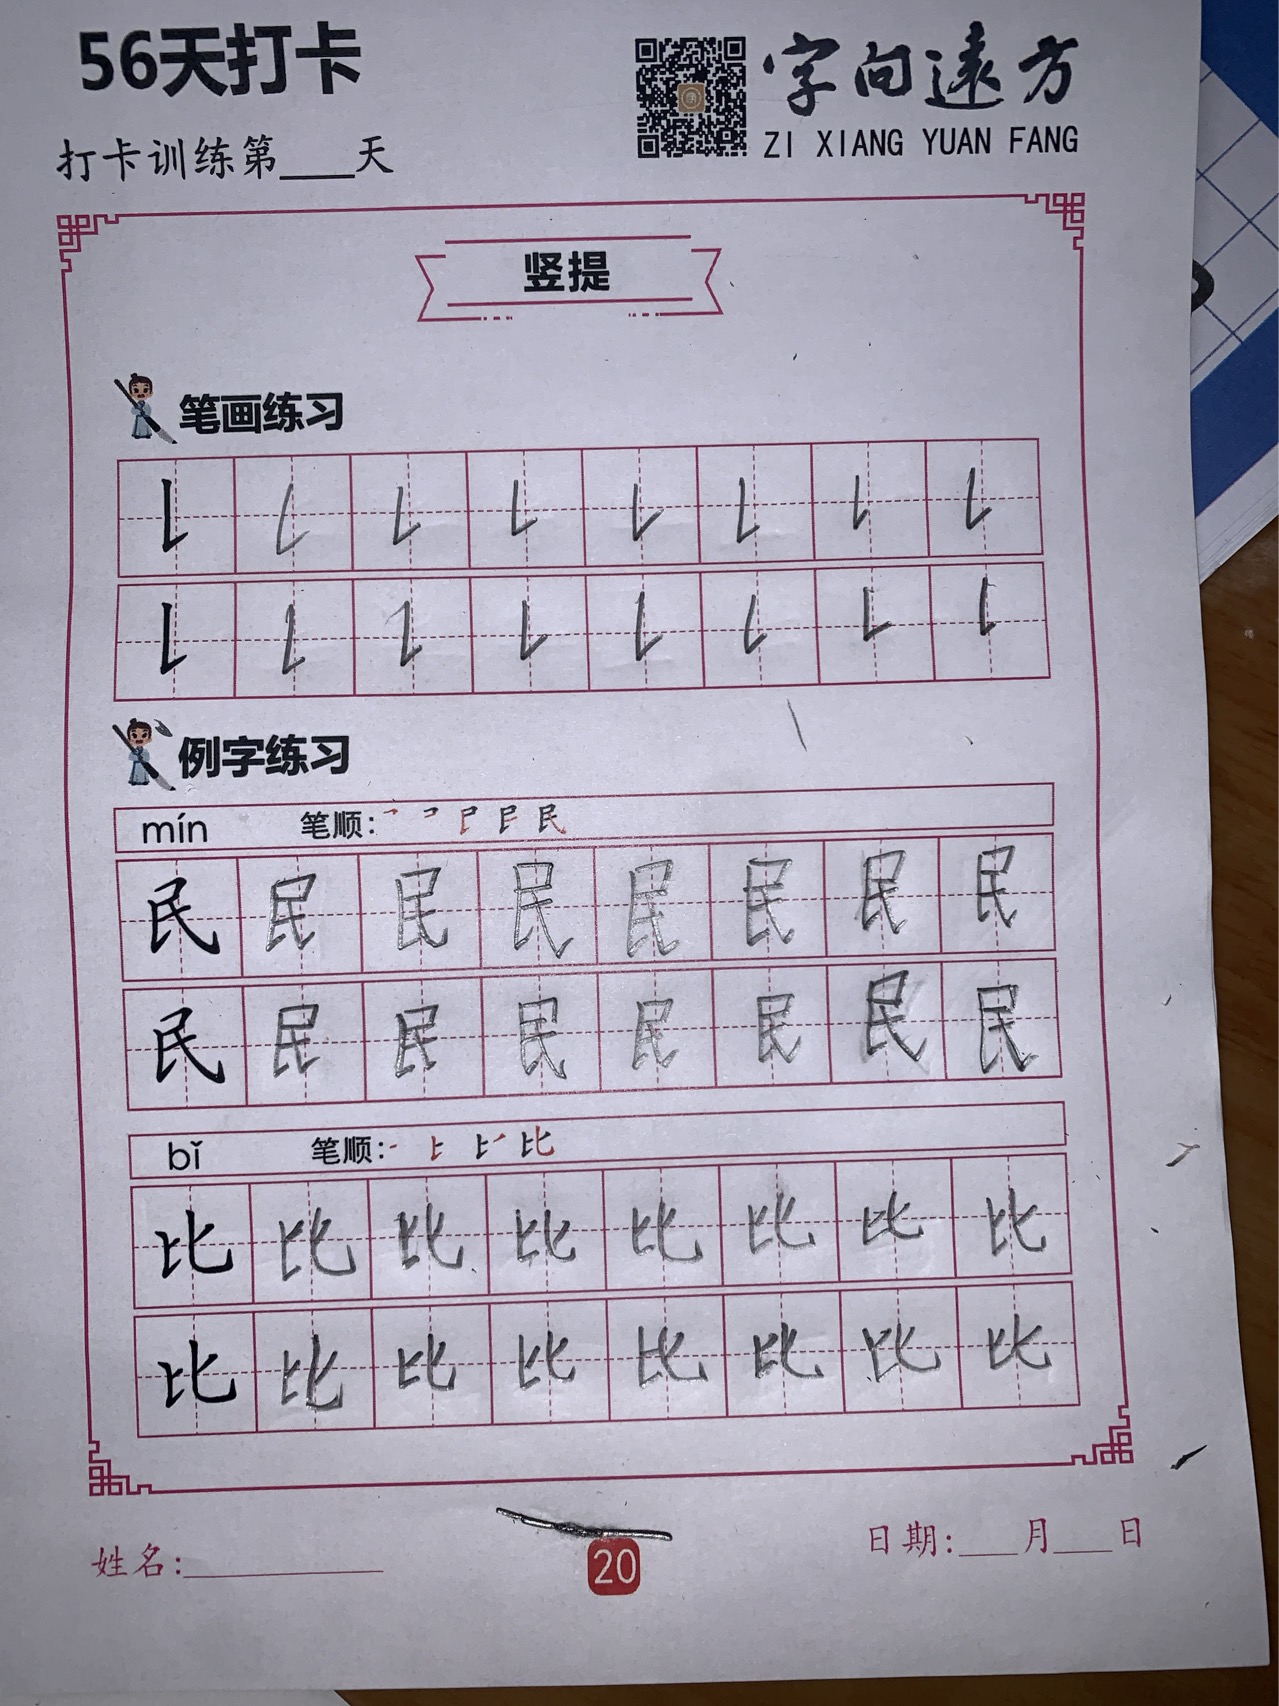 56天打卡
字向远方
ZI XIANG YUAN FANG
打卡训练第____天
竖提
笔画练习
例字练习
mín 笔顺:
民 民 民 民 民 民 民 民
民 民 民 民 民 民 民 民
bǐ 笔顺: 比
比 比 比 比 比 比 比 比
比 比 比 比 比 比 比 比
姓名:____________
20
日期:____月____日